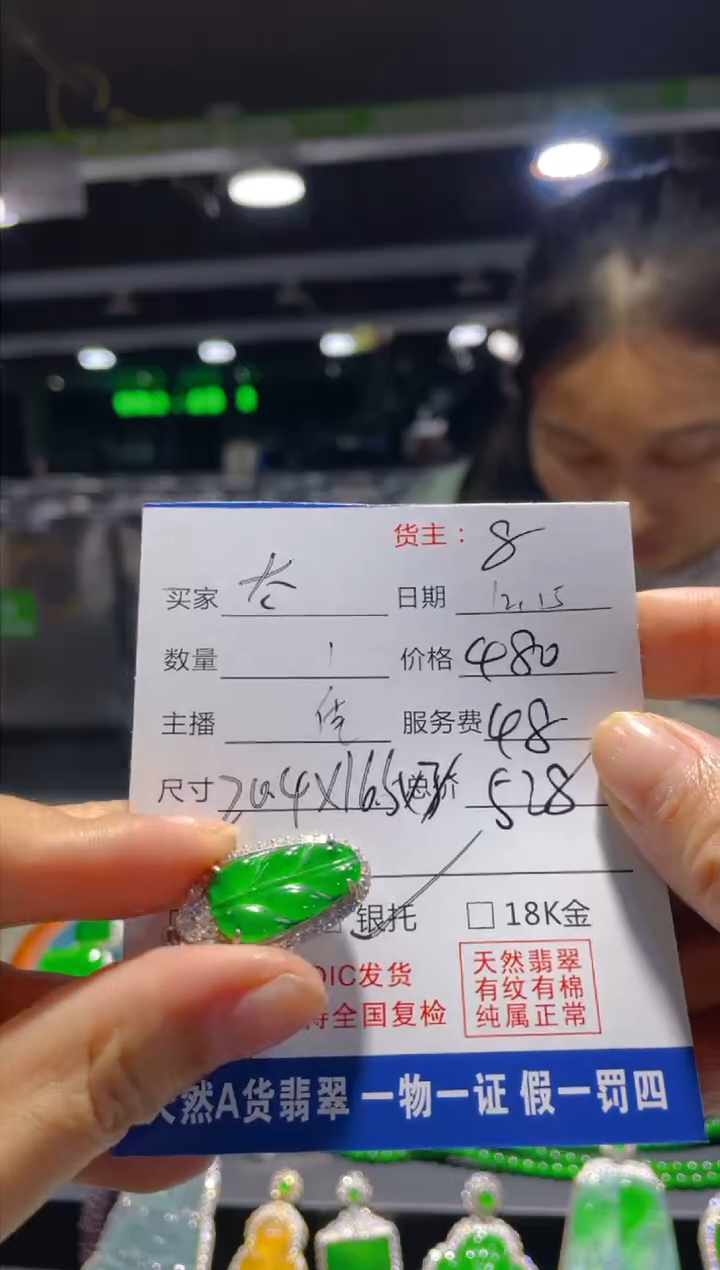 货主：8
买家 日期 12.15
数量 1 价格 480
主播 服务费 48
尺寸 总价 528
银托 18K金
DIC发货
全国复检
天然翡翠
有纹有棉
纯属正常
天然A货翡翠 一物一证 假一罚四